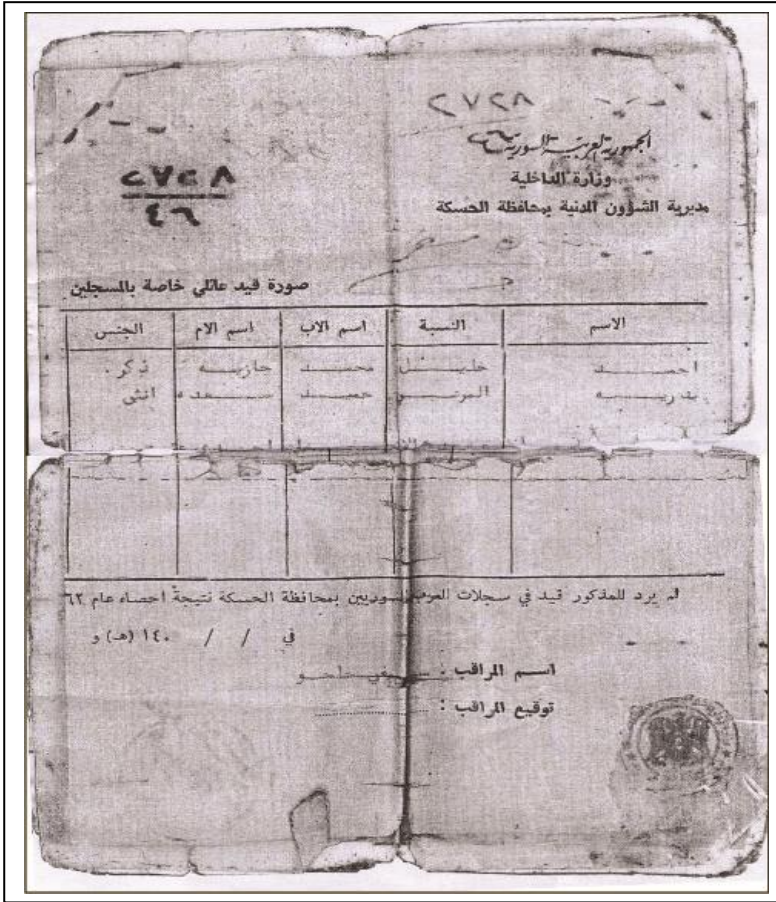 ٢٧٢٨
الجمهورية العربية السورية
٢٧٢٨
٤٦
وزارة الداخلية
مديرية الشؤون المدنية بمحافظة الحسكة
صورة قيد عائلي خاصة بالمسجلين
الاسم النسبة اسم الاب اسم الام الجنس
احمد خليل محمد جازيه ذكر
بدريه حمد سعده انثى
لم يرد للمذكور قيد في سجلات العرب السوريين بمحافظة الحسكة نتيجة احصاء عام ٦٢
في / / ١٤٠ (هـ) و
اسم المراقب :
توقيع المراقب :